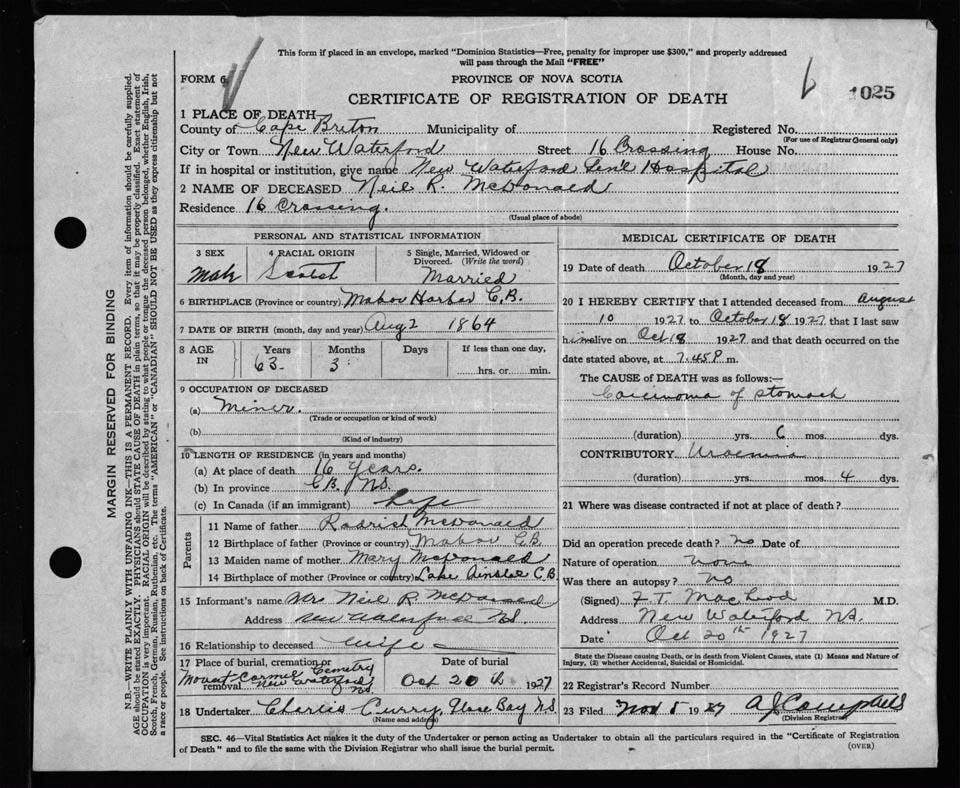 This form if placed in an envelope, marked "Dominion Statistics—Free, penalty for improper use $300," and properly addressed
will pass through the Mail "FREE"
FORM 6
PROVINCE OF NOVA SCOTIA
6
1025
CERTIFICATE OF REGISTRATION OF DEATH
1 PLACE OF DEATH
County of Cape Breton Municipality of Registered No.
(For use of Registrar General only)
City or Town New Waterford Street 16 Crossing House No.
If in hospital or institution, give name New Waterford Gen'l Hospital
2 NAME OF DECEASED Neil R. McDonald
Residence 16 Crossing.
(Usual place of abode)
PERSONAL AND STATISTICAL INFORMATION
3 SEX 4 RACIAL ORIGIN 5 Single, Married, Widowed or
Divorced. (Write the word)
Male Scotch Married
6 BIRTHPLACE (Province or country) Mabou Harbor C.B.
7 DATE OF BIRTH (month, day and year) Aug 2 1864
8 AGE IN Years Months Days If less than one day,
63 3 hrs. or min.
9 OCCUPATION OF DECEASED
(a) Miner.
(Trade or occupation or kind of work)
(b)
(Kind of industry)
10 LENGTH OF RESIDENCE (in years and months)
(a) At place of death 16 years.
(b) In province C.B. N.S.
(c) In Canada (if an immigrant) Life
Parents
11 Name of father Rodrick McDonald
12 Birthplace of father (Province or country) Mabou C.B.
13 Maiden name of mother Mary McDonald
14 Birthplace of mother (Province or country) Lake Ainslie C.B.
15 Informant's name Mrs Neil R. McDonald
Address New Waterford N.S.
16 Relationship to deceased Wife
17 Place of burial, cremation or removal Date of burial
Mount Carmel Cemetry
New Waterford N.S. Oct 20th 1927
18 Undertaker Charlie Curry, Glace Bay N.S.
(Name and address)
MEDICAL CERTIFICATE OF DEATH
19 Date of death October 18 1927
(Month, day and year)
20 I HEREBY CERTIFY that I attended deceased from August
10 1927 to October 18 1927, that I last saw
him alive on Oct 18 1927 and that death occurred on the
date stated above, at 7.45 P. m.
The CAUSE OF DEATH was as follows:—
Carcinoma of stomach
(duration) yrs. 6 mos. dys.
CONTRIBUTORY Uraemia
(duration) yrs. mos. 4 dys.
21 Where was disease contracted if not at place of death?
Did an operation precede death? no Date of
Nature of operation none
Was there an autopsy? no
(Signed) F.T. MacLeod M.D.
Address New Waterford N.S.
Date Oct 20th 1927
State the Disease causing Death, or in death from Violent Causes, state (1) Means and Nature of
Injury, (2) whether Accidental, Suicidal or Homicidal.
22 Registrar's Record Number
23 Filed Nov 5 1927 A.J. Campbell
(Division Registrar)
SEC. 46—Vital Statistics Act makes it the duty of the Undertaker or person acting as Undertaker to obtain all the particulars required in the "Certificate of Registration
of Death" and to file the same with the Division Registrar who shall issue the burial permit.
(OVER)
MARGIN RESERVED FOR BINDING
N.B.—WRITE PLAINLY WITH UNFADING INK—THIS IS A PERMANENT RECORD. Every item of information should be carefully supplied.
AGE should be stated EXACTLY. PHYSICIANS should STATE CAUSE OF DEATH in plain terms, so that it may be properly classified. Exact statement of
OCCUPATION is very important. RACIAL ORIGIN will be described by stating to what people or tongue the deceased person belonged, whether English, Irish,
Scotch, French, German, Russian, Ruthenian, etc. The terms "AMERICAN" or "CANADIAN" SHOULD NOT BE USED as they express citizenship but not
a race or people. See instructions on back of Certificate.